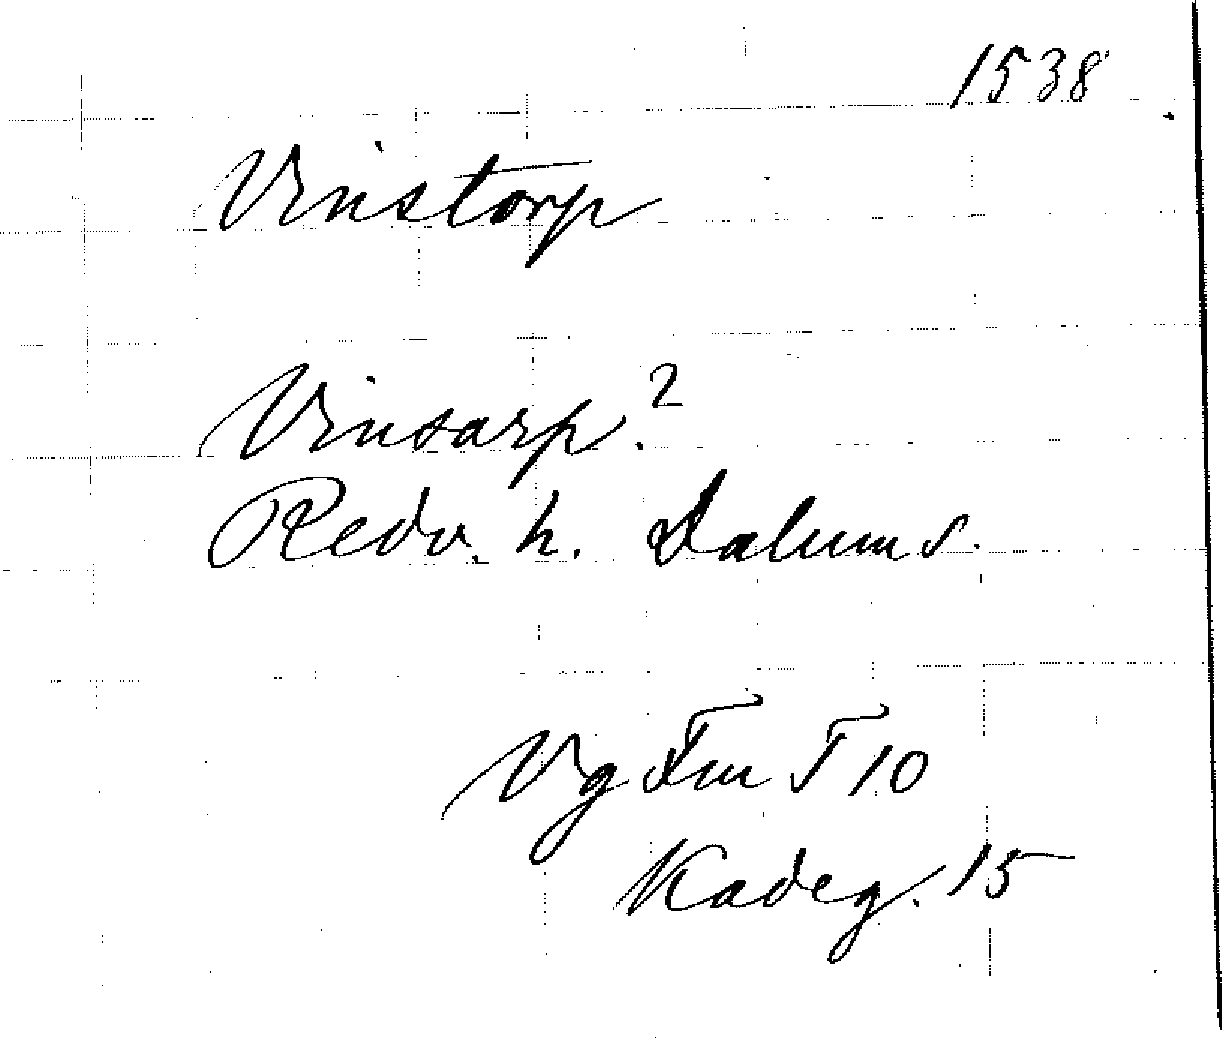 1538
Vinstorp
Vinsarp?
Redv. h. Dalum s.
Vg Fm T 10
Kadeg. 15